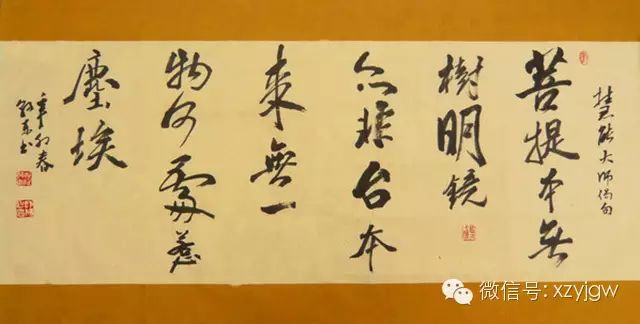 慧能大师偈句
菩提本無
樹明鏡
亦非台本
來無一
物何處惹
塵埃
辛卯春
书
微信号: xzyjgw